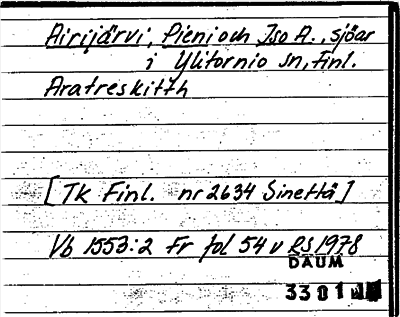 Airijärvi, Pieni och Iso A., sjöar
i Ylitornio sn, Finl.
Aratreskith
[TK Finl. nr 2634 Sinettä]
Vb 1553:2 Fr fol 54 v RS 1978
DAUM
3301